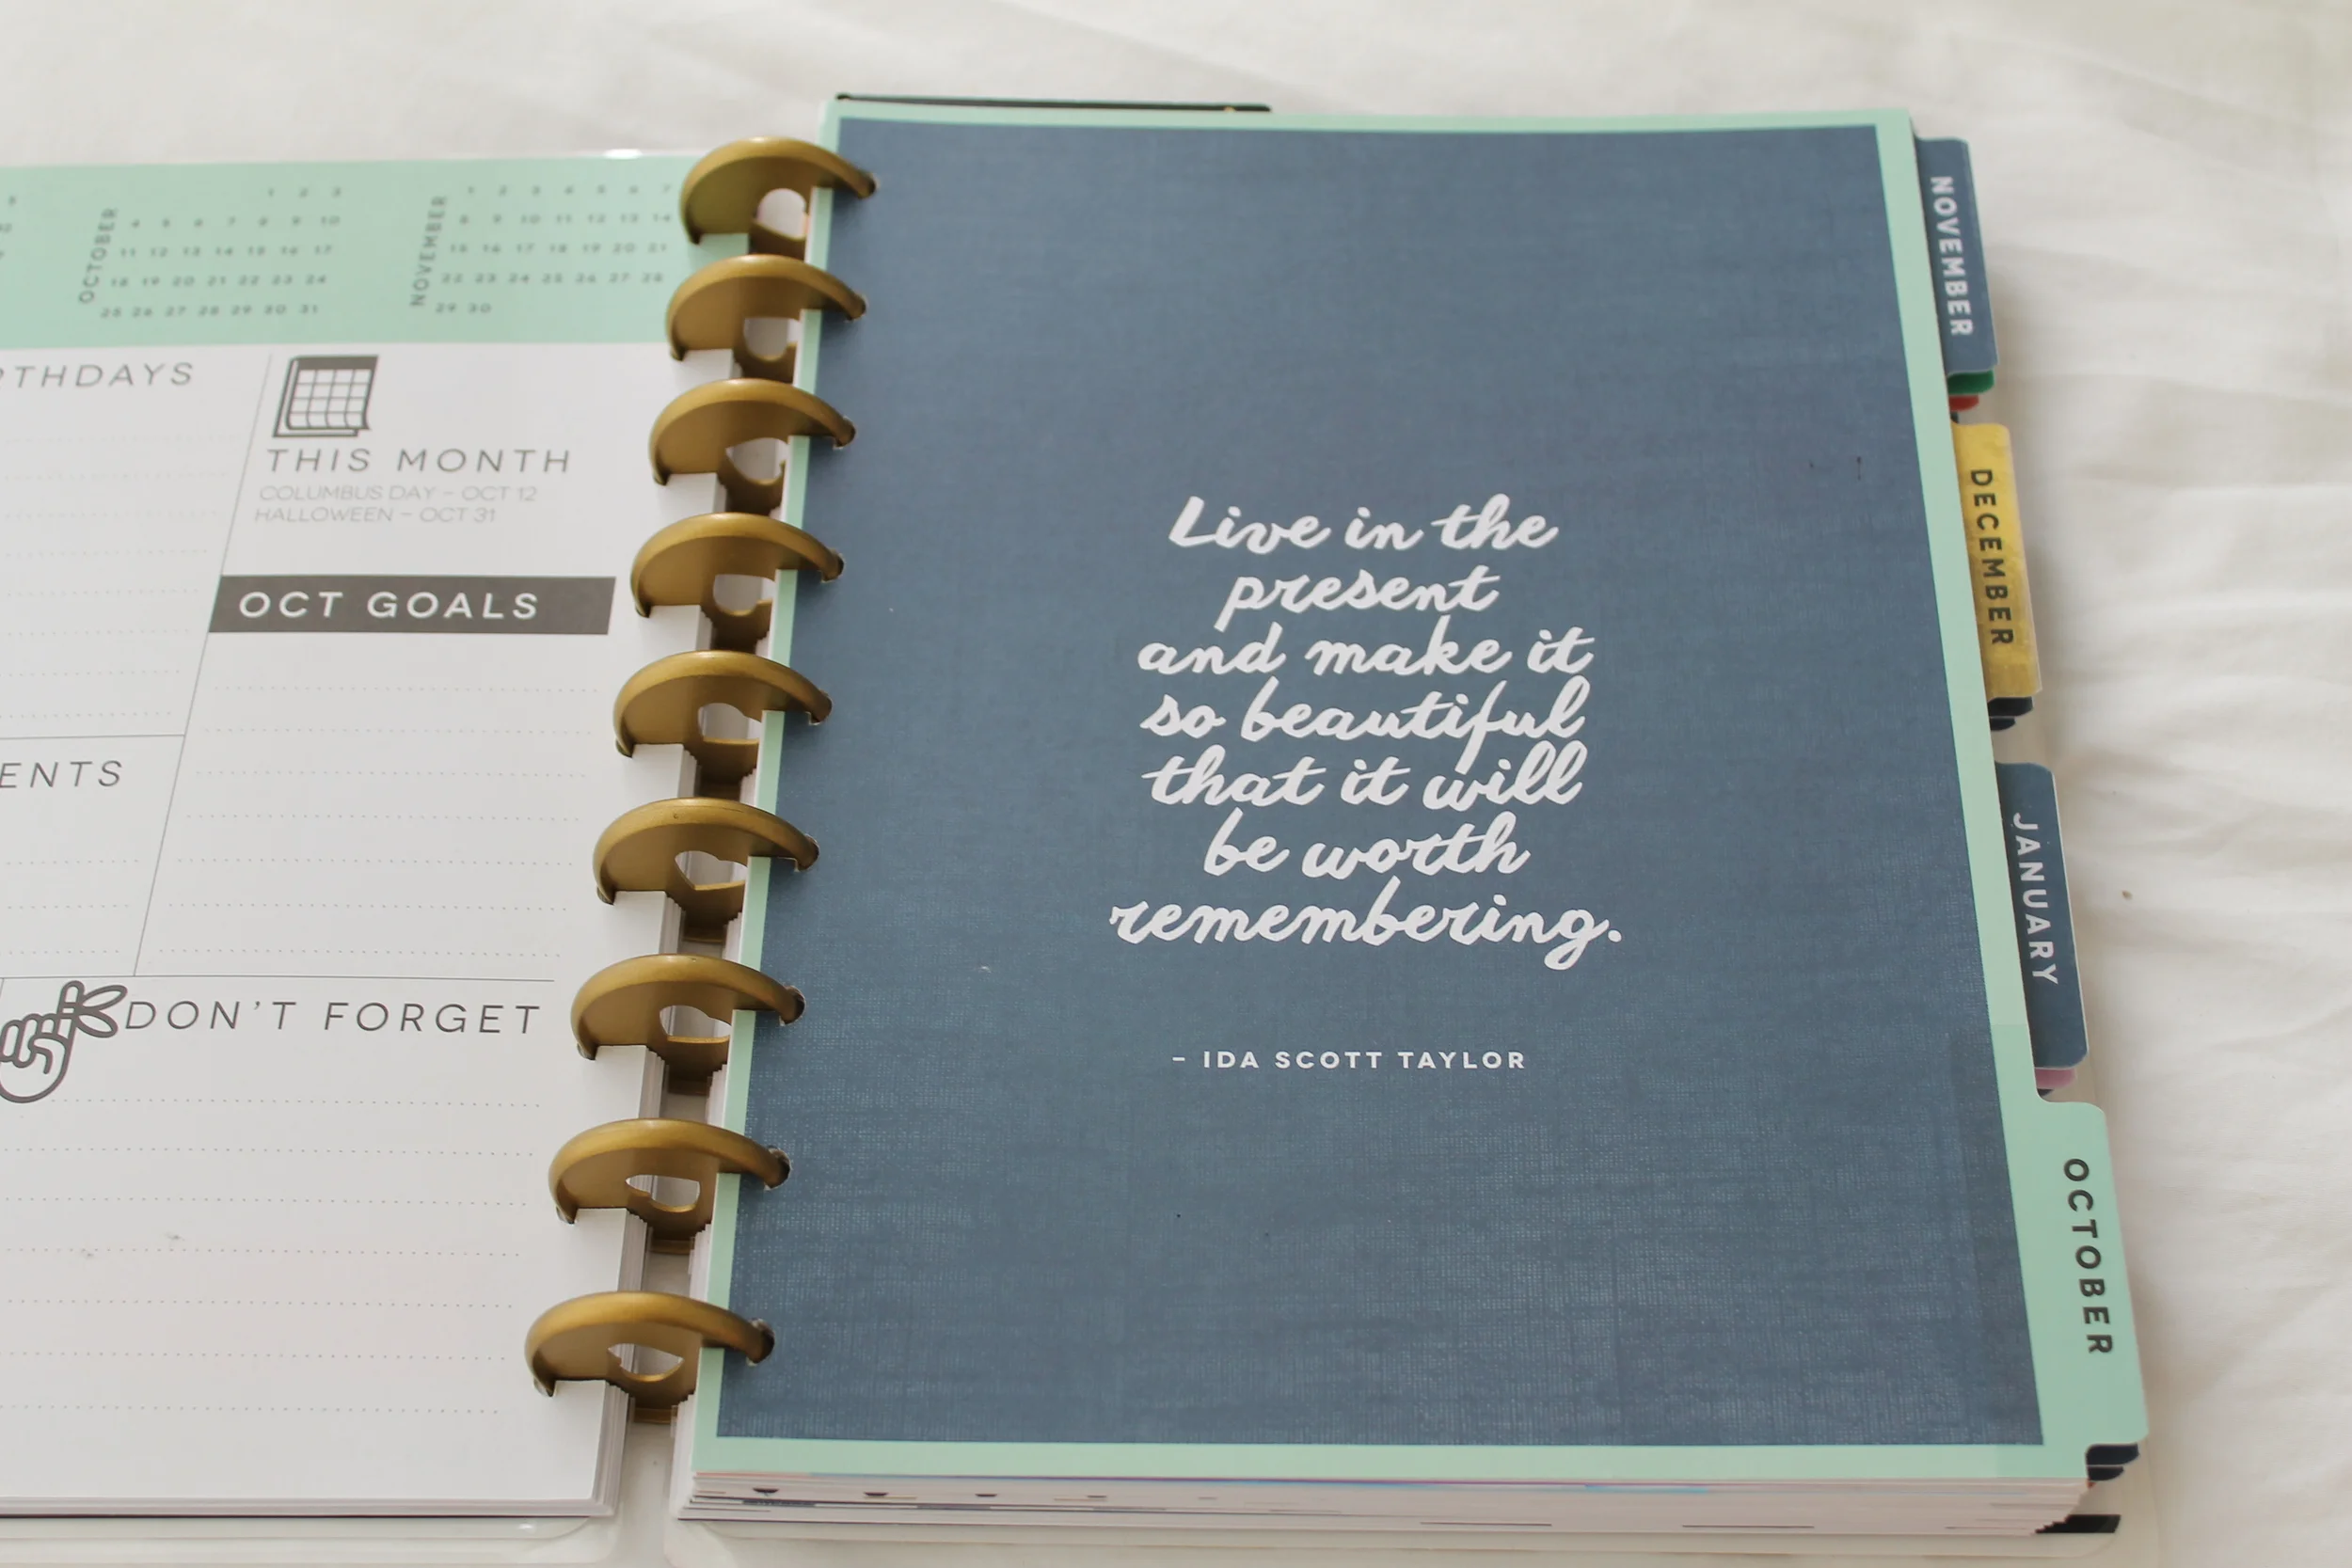 OCTOBER
1 2 3
4 5 6 7 8 9 10
11 12 13 14 15 16 17
18 19 20 21 22 23 24
25 26 27 28 29 30 31
NOVEMBER
1 2 3 4 5 6 7
8 9 10 11 12 13 14
15 16 17 18 19 20 21
22 23 24 25 26 27 28
29 30
RTHDAYS
THIS MONTH
COLUMBUS DAY – OCT 12
HALLOWEEN – OCT 31
OCT GOALS
ENTS
DON'T FORGET
Live in the
present
and make it
so beautiful
that it will
be worth
remembering.
– IDA SCOTT TAYLOR
NOVEMBER
DECEMBER
JANUARY
OCTOBER